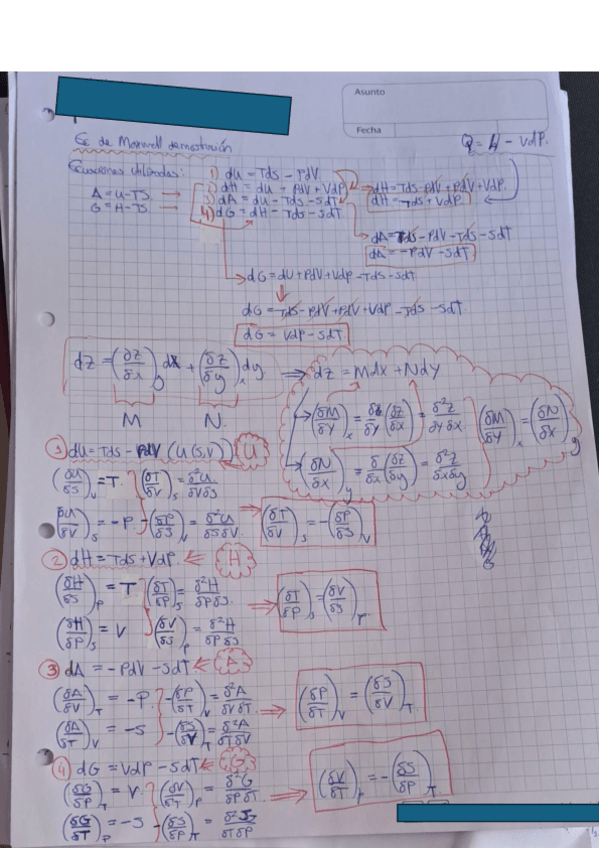 Asunto
Fecha
Ec de Maxwell demostración
Q = H - VdP.
Ecuaciones utilizadas:
A = U - TS. →
G = H - TS. →
1) dU = TdS - PdV
2) dH = dU + PdV + VdP
3) dA = dU - TdS - SdT
4) dG = dH - TdS - SdT
dH = TdS - PdV + PdV + VdP.
dH = TdS + VdP
dA = TdS - PdV - TdS - SdT
dA = -PdV - SdT
→ dG = dU + PdV + VdP - TdS - SdT
dG = TdS - PdV + PdV + VdP - TdS - SdT
dG = VdP - SdT
dz = (∂z/∂x)y dx + (∂z/∂y)x dy ⇒ dz = Mdx + Ndy
M N.
(δM/δY)x = δ/δY (δz/δx) = δ²z/δyδx
(δN/δx)y = δ/δx (δz/δy) = δ²z/δxδy
(δM/δY)x = (δN/δx)y
1 dU = TdS - PdV (U(S,V)) U
(δU/δS)V = T. (δT/δV)S = δ²U/δVδS
(δU/δV)S = -P -(δP/δS)V = δ²U/δSδV (δT/δV)S = -(δP/δS)V
2 dH = TdS + VdP ⇐ H
(δH/δS)P = T (δT/δP)S = δ²H/δPδS.
(δH/δP)S = V (δV/δS)P = δ²H/δPδS ⇒ (δT/δP)S = (δV/δS)P
3 dA = -PdV - SdT ⇐ A
(δA/δV)T = -P. -(δP/δT)V = δ²A/δVδT
(δA/δT)V = -S -(δS/δV)T = δ²A/δTδV ⇒ (δP/δT)V = (δS/δV)T
4 dG = VdP - SdT ⇐ G
(δG/δP)T = V. (δV/δT)P = δ²G/δPδT.
(δG/δT)P = -S -(δS/δP)T = δ²G/δTδP ⇒ (δV/δT)P = -(δS/δP)T